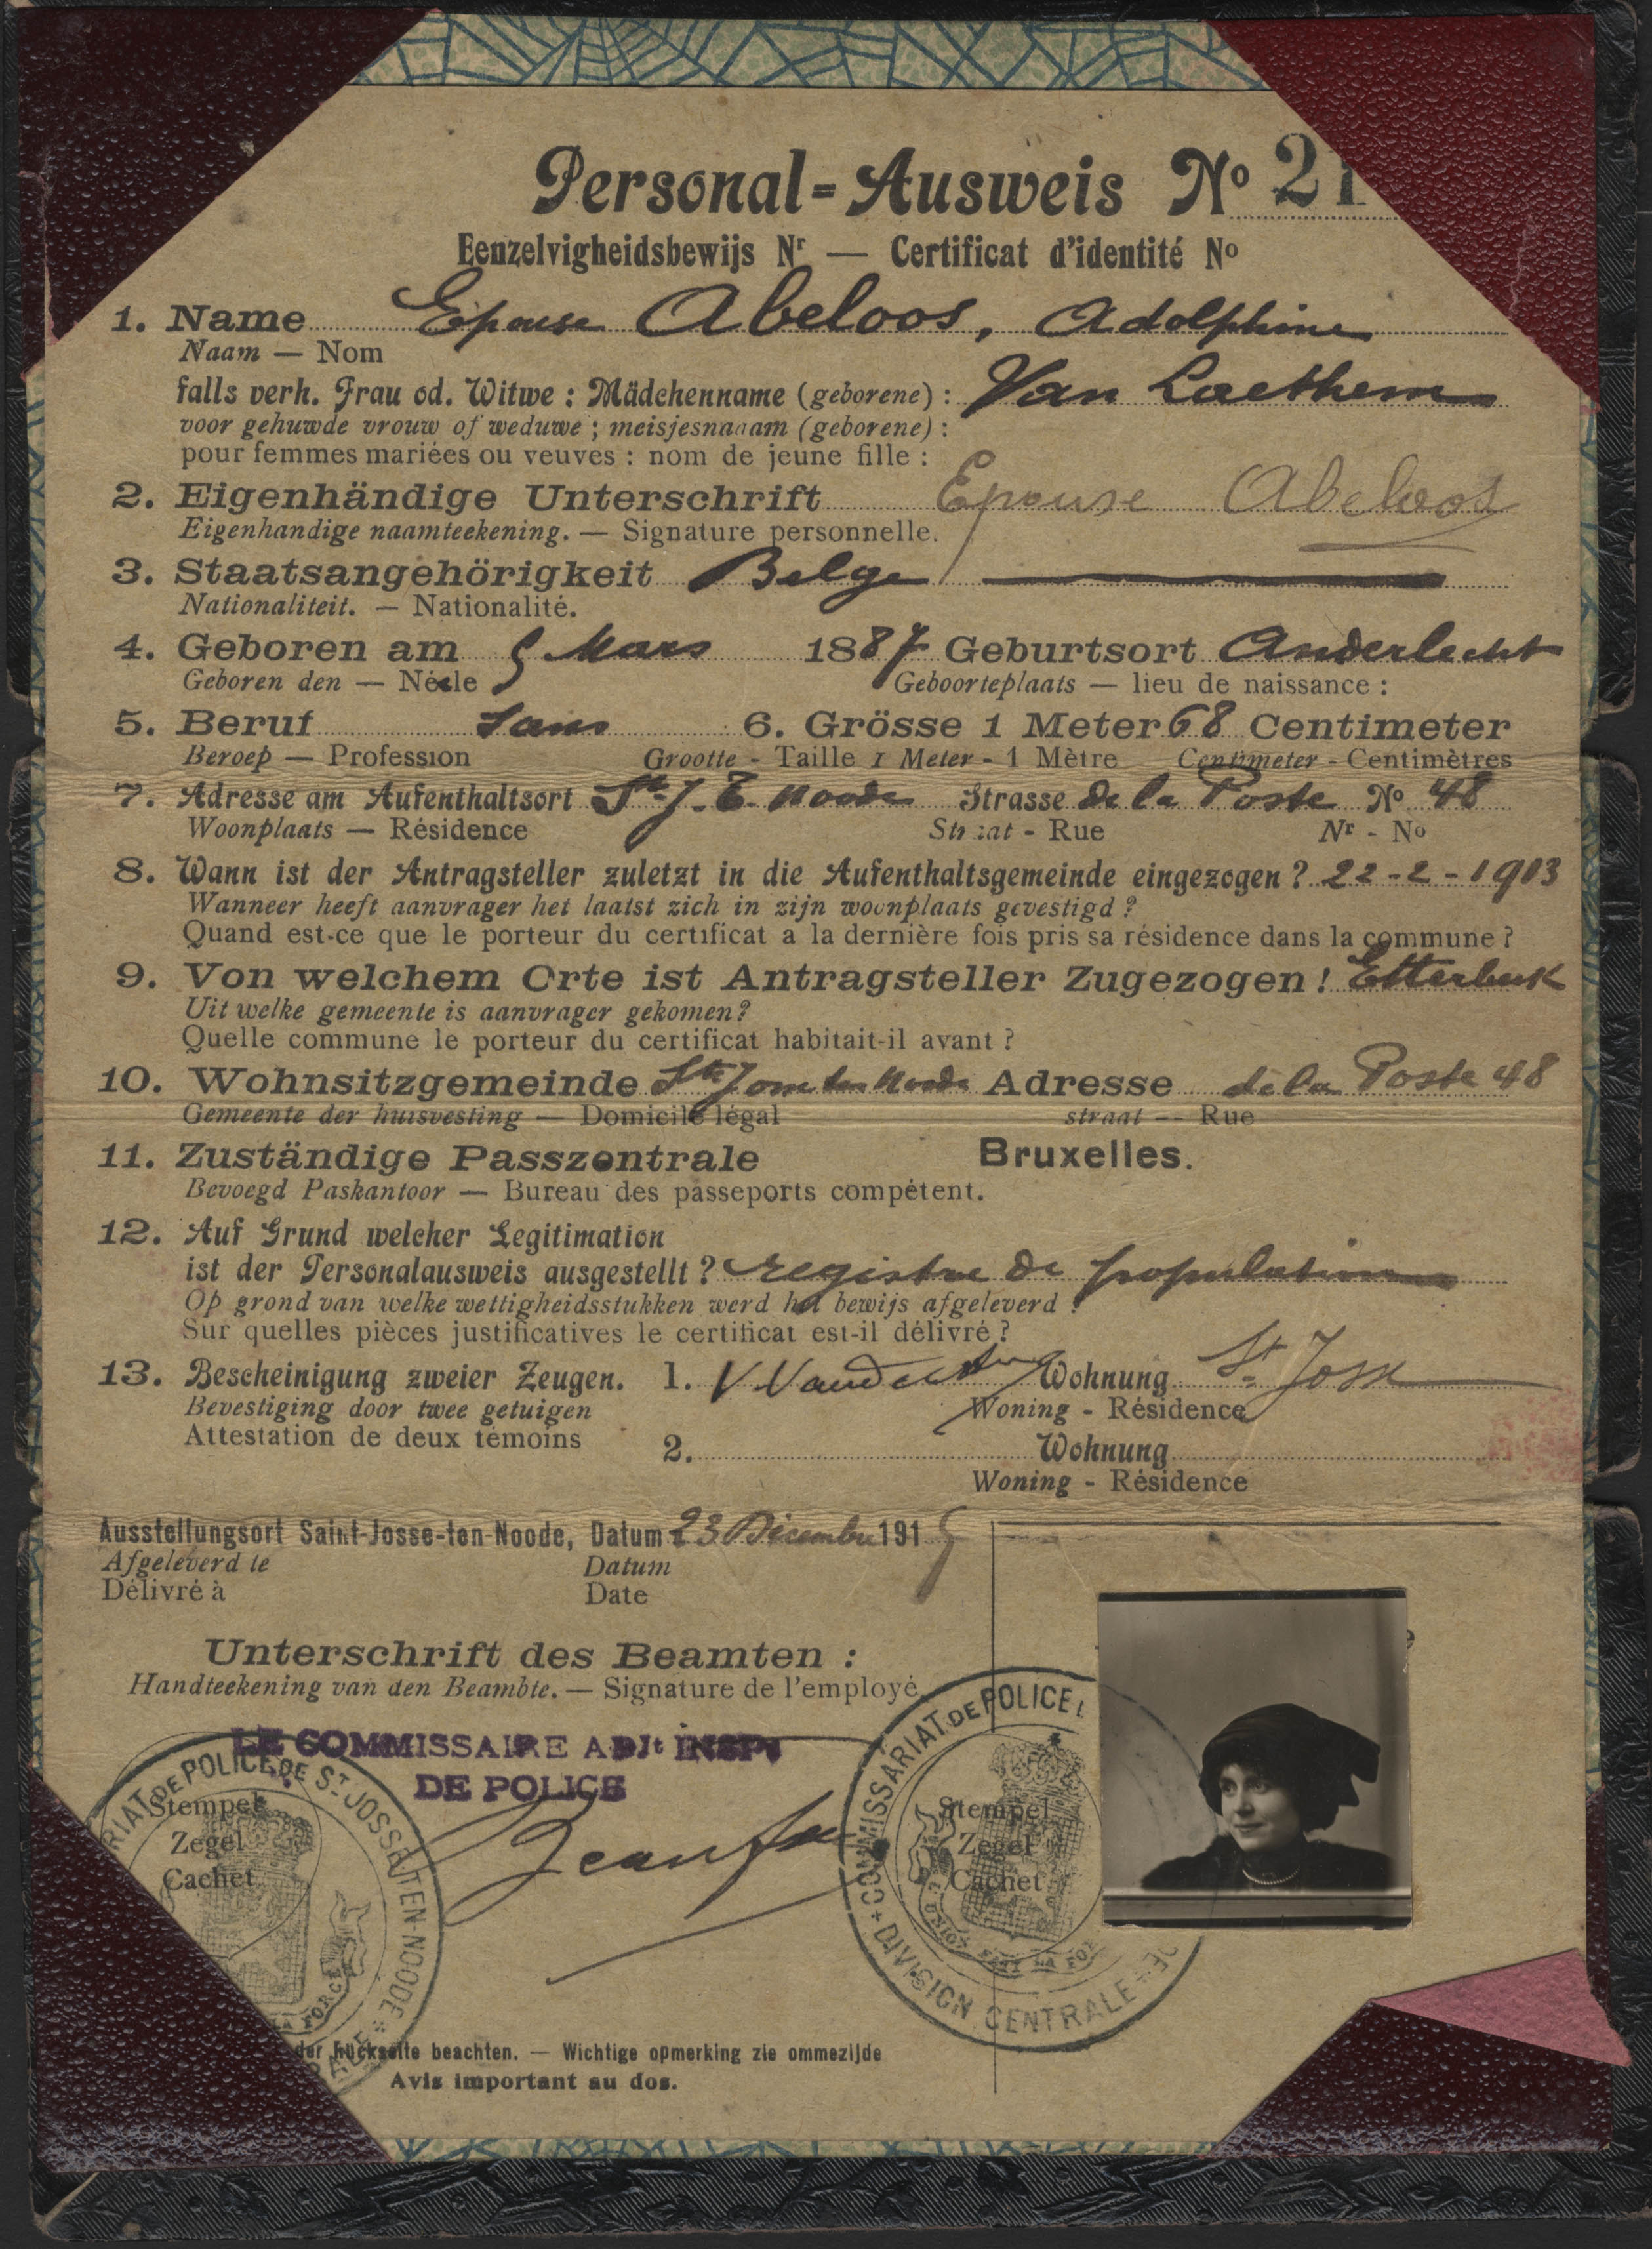 Personal=Ausweis No 21
Eenzelvigheidsbewijs Nr — Certificat d'identité No
1. Name Epouse Abeloos, Adolphine
Naam — Nom
falls verh. Frau od. Witwe : Mädchenname (geborene) : Van Laethem
voor gehuwde vrouw of weduwe ; meisjesnaaam (geborene) :
pour femmes mariées ou veuves : nom de jeune fille :
2. Eigenhändige Unterschrift Epouse Abeloos
Eigenhandige naamteekening. — Signature personnelle.
3. Staatsangehörigkeit Belge
Nationaliteit. — Nationalité.
4. Geboren am 9 Mars 1887 Geburtsort Anderlecht
Geboren den — Né le Geboorteplaats — lieu de naissance :
5. Beruf Sans 6. Grösse 1 Meter 68 Centimeter
Beroep — Profession Grootte - Taille 1 Meter - 1 Mètre Centimeter - Centimètres
7. Adresse am Aufenthaltsort St. J. T. Noode Strasse de la Poste No 48
Woonplaats — Résidence Straat - Rue Nr - No
8. Wann ist der Antragsteller zuletzt in die Aufenthaltsgemeinde eingezogen ? 22-2-1913
Wanneer heeft aanvrager het laatst zich in zijn woonplaats gevestigd ?
Quand est-ce que le porteur du certificat a la dernière fois pris sa résidence dans la commune ?
9. Von welchem Orte ist Antragsteller Zugezogen ! Etterbeek
Uit welke gemeente is aanvrager gekomen ?
Quelle commune le porteur du certificat habitait-il avant ?
10. Wohnsitzgemeinde St Josse ten Noode Adresse de la Poste 48
Gemeente der huisvesting — Domicile légal straat — Rue
11. Zuständige Passzentrale Bruxelles.
Bevoegd Paskantoor — Bureau des passeports compétent.
12. Auf Grund welcher Legitimation
ist der Personalausweis ausgestellt ? registre de population
Op grond van welke wettigheidsstukken werd het bewijs afgeleverd ?
Sur quelles pièces justificatives le certificat est-il délivré ?
13. Bescheinigung zweier Zeugen. 1. V. Wohnung St Josse
Bevestiging door twee getuigen Woning - Résidence
Attestation de deux témoins
2. Wohnung
Woning - Résidence
Ausstellungsort Saint-Josse-ten-Noode, Datum 23 Décembre 1915
Afgeleverd te Datum
Délivré à Date
Unterschrift des Beamten :
Handteekening van den Beambte. — Signature de l'employé.
LE COMMISSAIRE ADJt INSPr
DE POLICE
RIAT DE POLICE DE ST JOSSE-TEN-NOODE
LA FORCE
Stempel
Zegel
Cachet
COMMISSARIAT DE POLICE
DIVISION CENTRALE
Stempel
Zegel
Cachet
der Rückseite beachten. — Wichtige opmerking zie ommezijde
Avis important au dos.